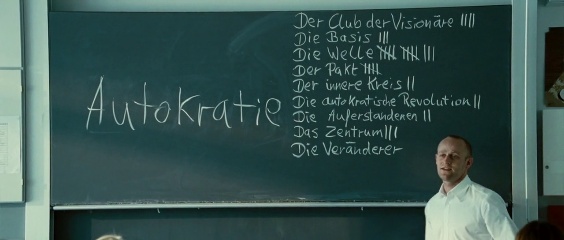 Autokratie
Der Club der Visionäre ||||
Die Basis |||
Die Welle 卌 卌 |||
Der Pakt 卌
Der innere Kreis ||
Die autokratische Revolution ||
Die Auferstandenen ||
Das Zentrum |||
Die Veränderer